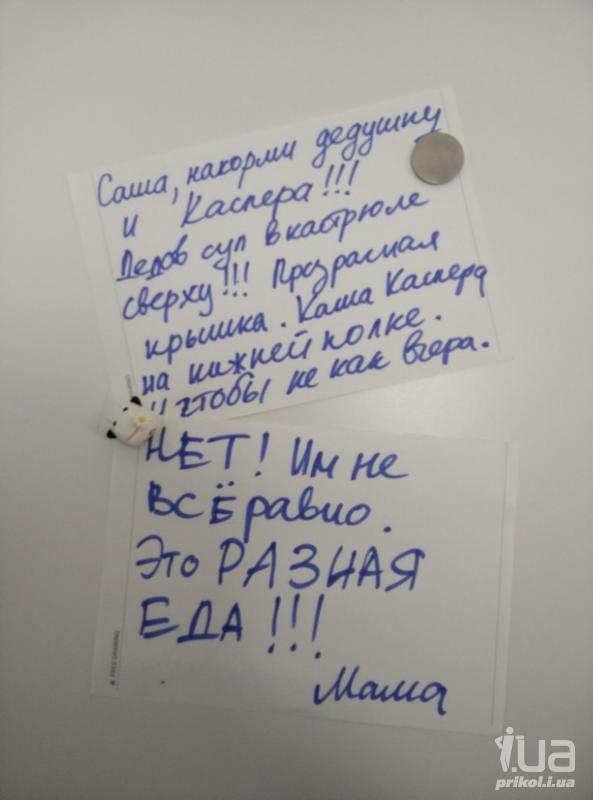 Саша, накорми дедушку
и Каспера!!!
Дедов суп в кастрюле
сверху!!! Прозрасная
крышка. Каша Каспера
на нижней полке.
И чтобы не как вчера.
НЕТ! Им не
ВСЁ равно.
Это РАЗНАЯ
ЕДА!!!
Мама
FREE DRAWING
i.ua
prikol.i.ua